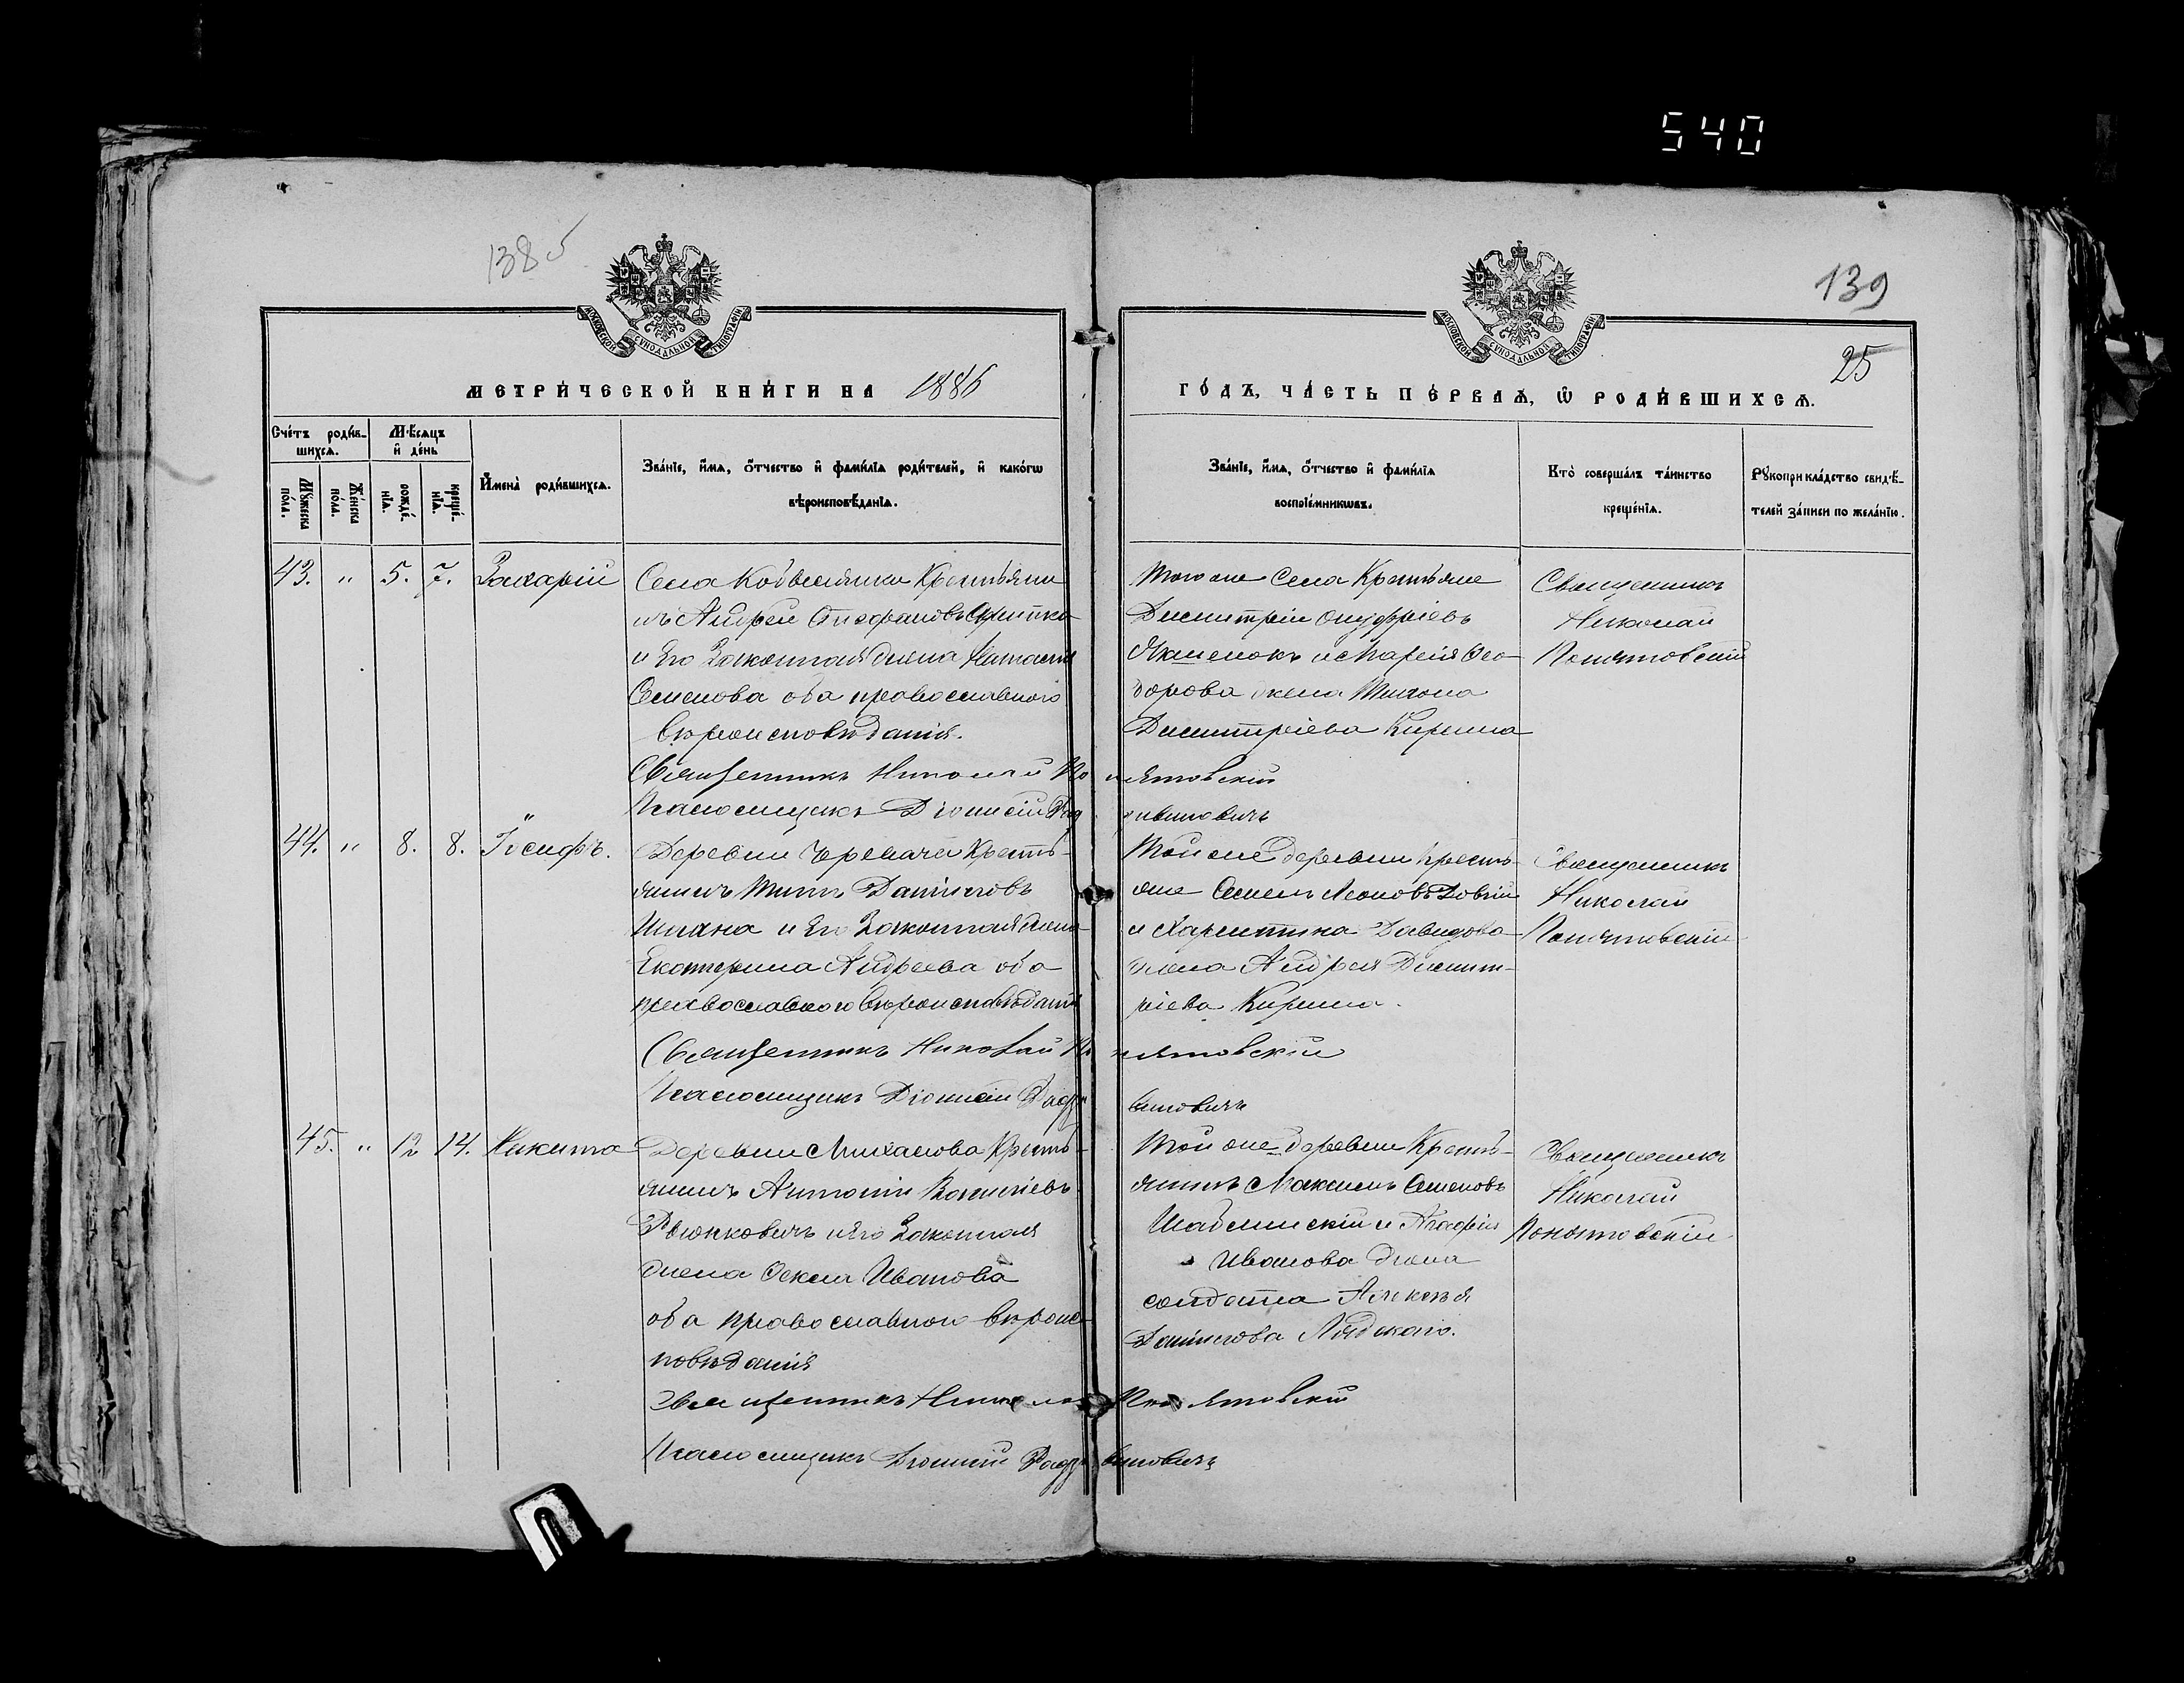 540
1385
139
МОСКОВСКОЙ СѴНОДАЛЬНОЙ ТИПОГРАФІИ
МОСКОВСКОЙ СѴНОДАЛЬНОЙ ТИПОГРАФІИ
25
МЕТРИ́ЧЕСКОЙ КНИ́ГИ НА 1886
ГО́ДЪ, ЧА́СТЬ ПЕ́РВАѦ, Ѡ РОДИ́ВШИХСѦ.
Сче́тъ роди́в-
шихсѧ.
Мꙋ́жеска по́ла.
Же́нска по́ла.
Мѣ́сѧцъ и де́нь
рожде́-нїѧ.
креще́-нїѧ.
И҆мена̀ роди́вшихсѧ.
Зва́нїе, и҆́мѧ, ѻ҆́тчество и҆ фами́лїѧ роди́телей, и҆ како́гѡ
вѣроисповѣ́данїѧ.
Зва́нїе, и҆́мѧ, ѻ҆́тчество и҆ фами́лїѧ
воспрїе́мникѡвъ.
Кто̀ соверша́лъ та́инство
креще́нїѧ.
Рꙋкоприкла́дство свидѣ́-
телей за́писи по жела́нїю.
43. " 5. 7. Захарій
Села Крестьяни
нъ Андрей Стефановъ
и Его Законная жена Настасія
Семенова оба православнаго
вѣроисповѣданія.
Священникъ Николай Понятовскій
Псаломщикъ Діонисій
Того же Села Крестьяне
Димитрій Онуфріевъ
и Марія Ѳео-
дорова жена
Димитріева Кирина
Священникъ
Николай
Понятовскій
44. " 8. 8. Іосифъ.
Деревни Крестъ-
янинъ Титъ Даниловъ
и Его Законная жена
Екатерина Андреева оба
православнаго вѣроисповѣданія
Священникъ Николай Понятовскій
Псаломщикъ Діонисій
Той же деревни Кресть-
яне Семенъ Леоновъ
и Харитина Давидова
жена Андрея Димит-
ріева Кирина.
Священникъ
Николай
Понятовскій
45. " 12 14. Никита
Деревни Михалова Кресть-
янинъ Антоній Васильевъ
и Его Законная
жена Ѳекла Иванова
оба православнаго вѣроис-
повѣданія
Священникъ Николай Понятовскій
Псаломщикъ Діонисій
Той же деревни Кресть-
янинъ Максимъ Семеновъ
и Агафія
Иванова жена
солдата Алексѣя
Данилова Лядскаго.
Священникъ
Николай
Понятовскій